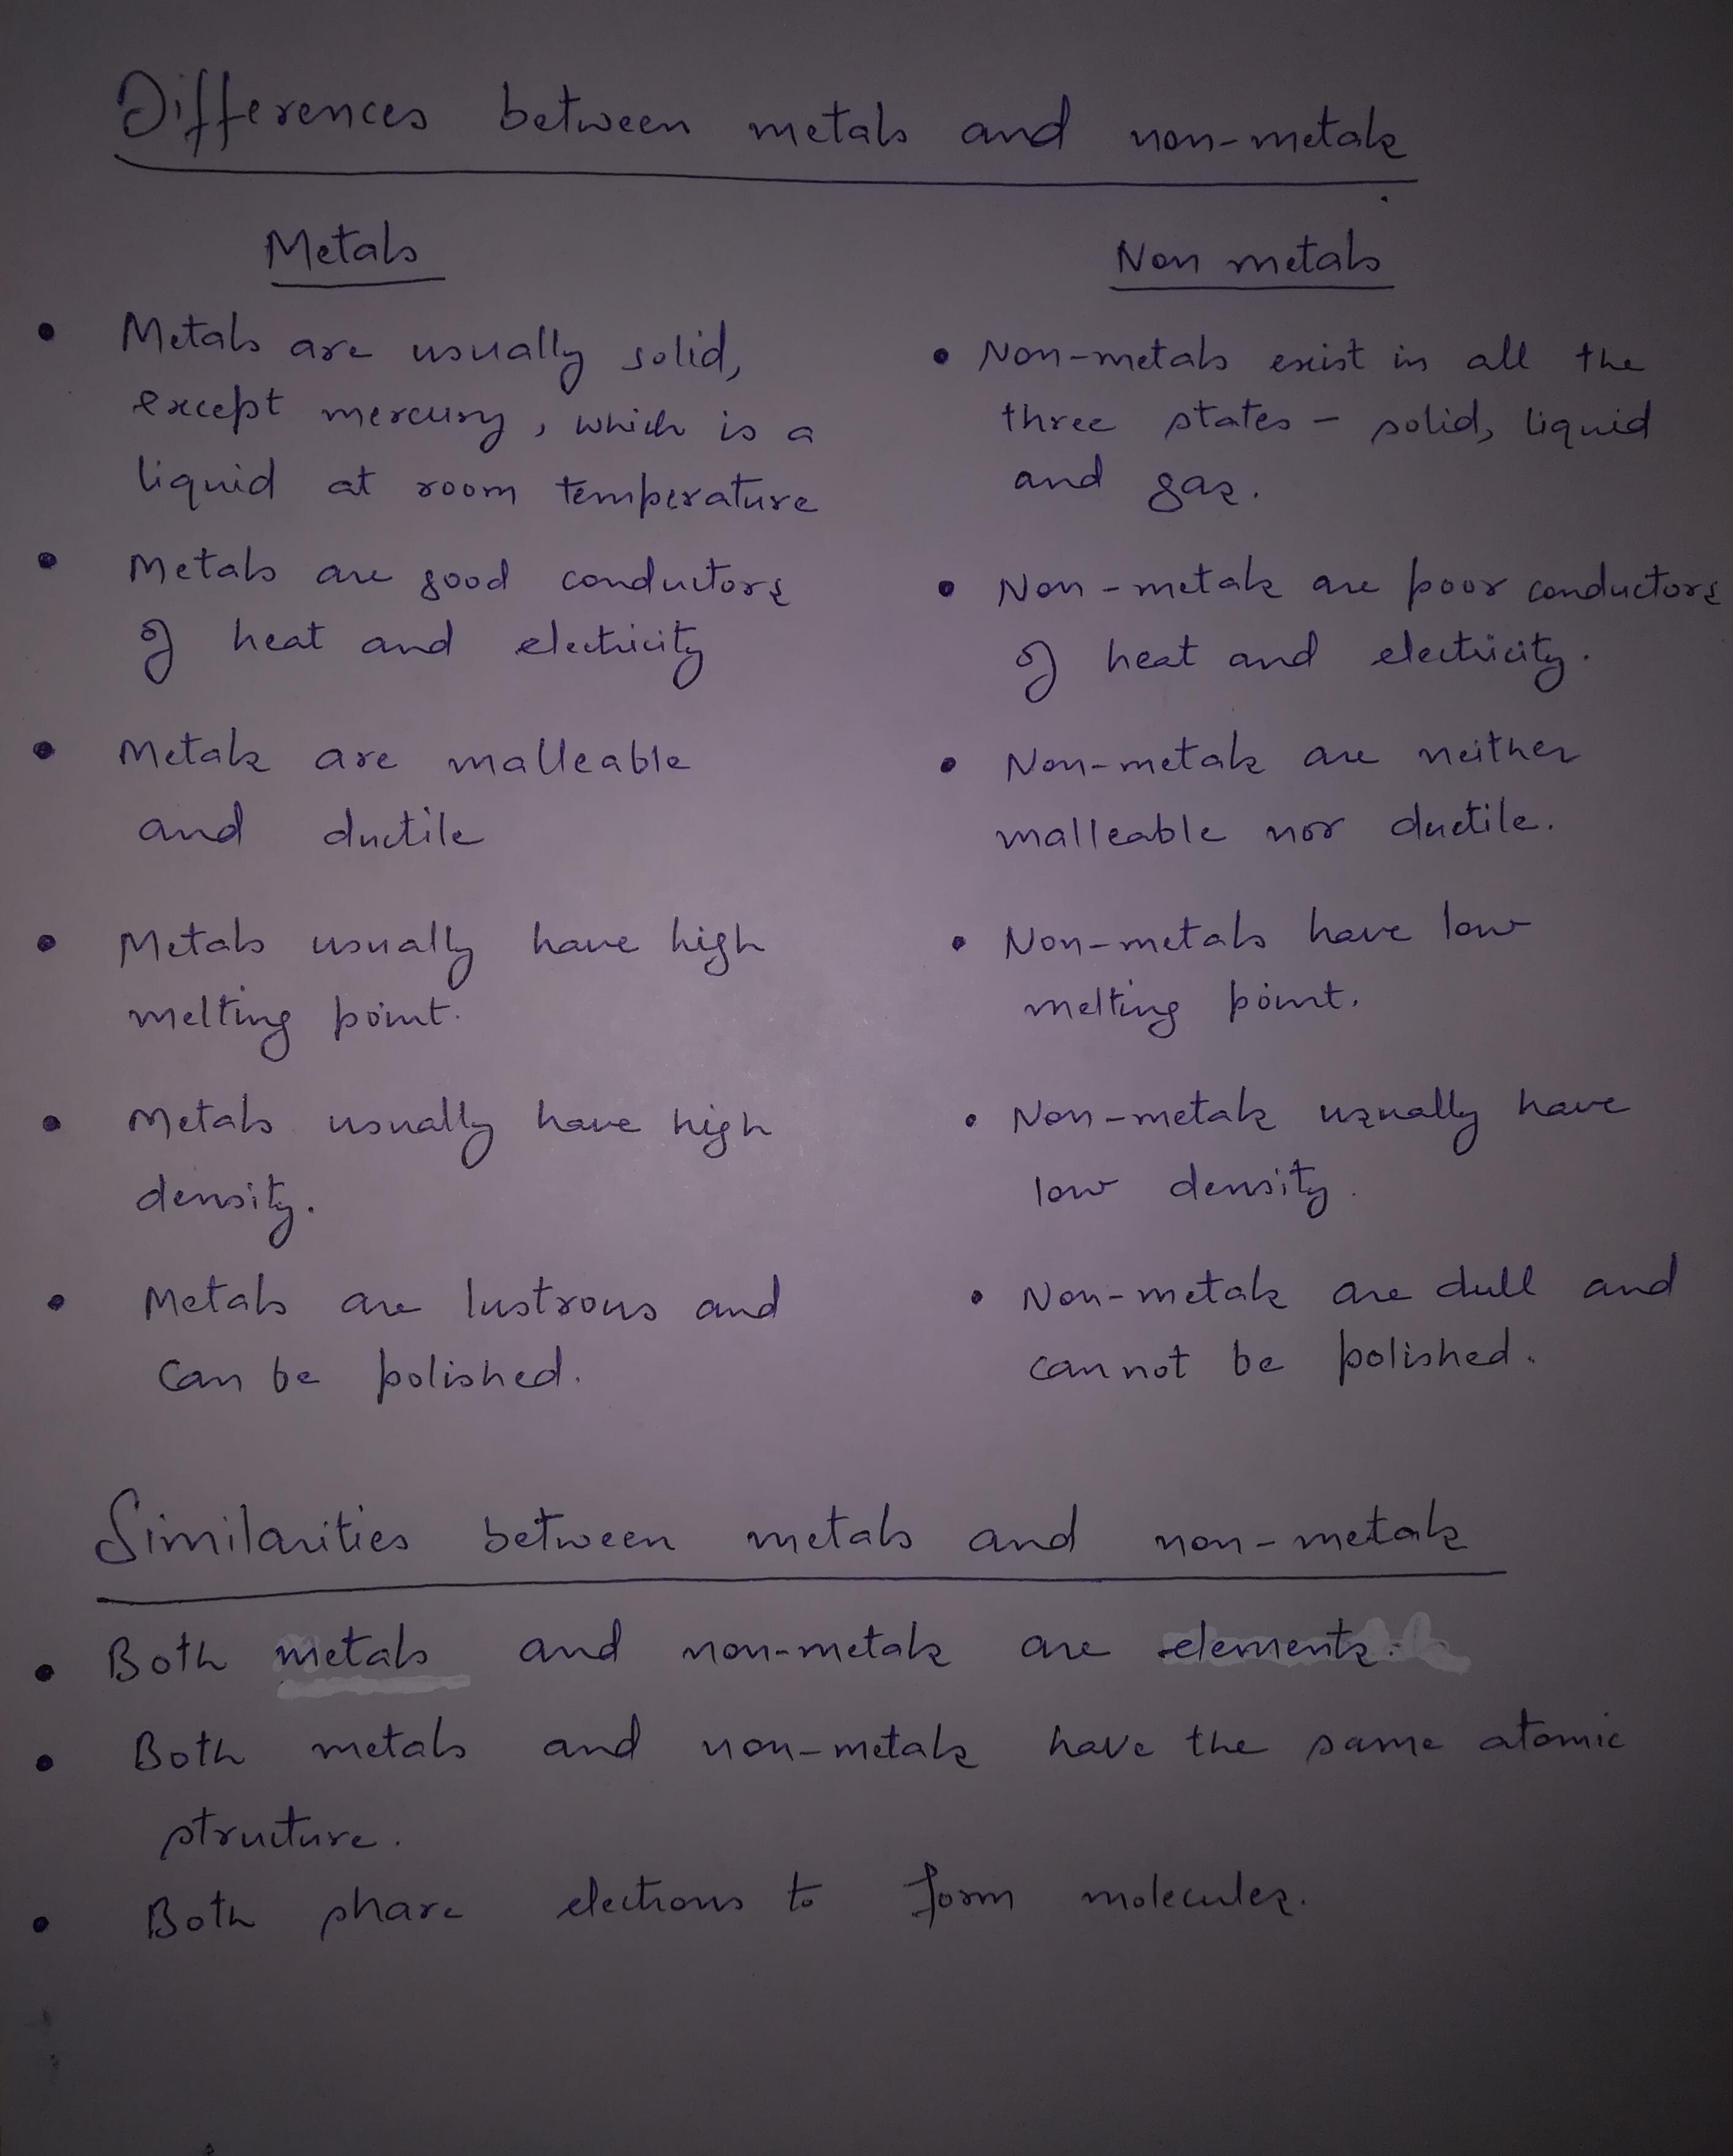 Differences between metals and non-metals
Metals
Metals are usually solid,
except mercury, which is a
liquid at room temperature
Metals are good conductors
of heat and electricity
Metals are malleable
and ductile
Metals usually have high
melting point.
Metals usually have high
density.
Metals are lustrous and
can be polished.
Non metals
Non-metals exist in all the
three states - solid, liquid
and gas.
Non-metals are poor conductors
of heat and electricity.
Non-metals are neither
malleable nor ductile.
Non-metals have low
melting point.
Non-metals usually have
low density.
Non-metals are dull and
cannot be polished.
Similarities between metals and non-metals
Both metals and non-metals are elements.
Both metals and non-metals have the same atomic
structure.
Both share electrons to form molecules.